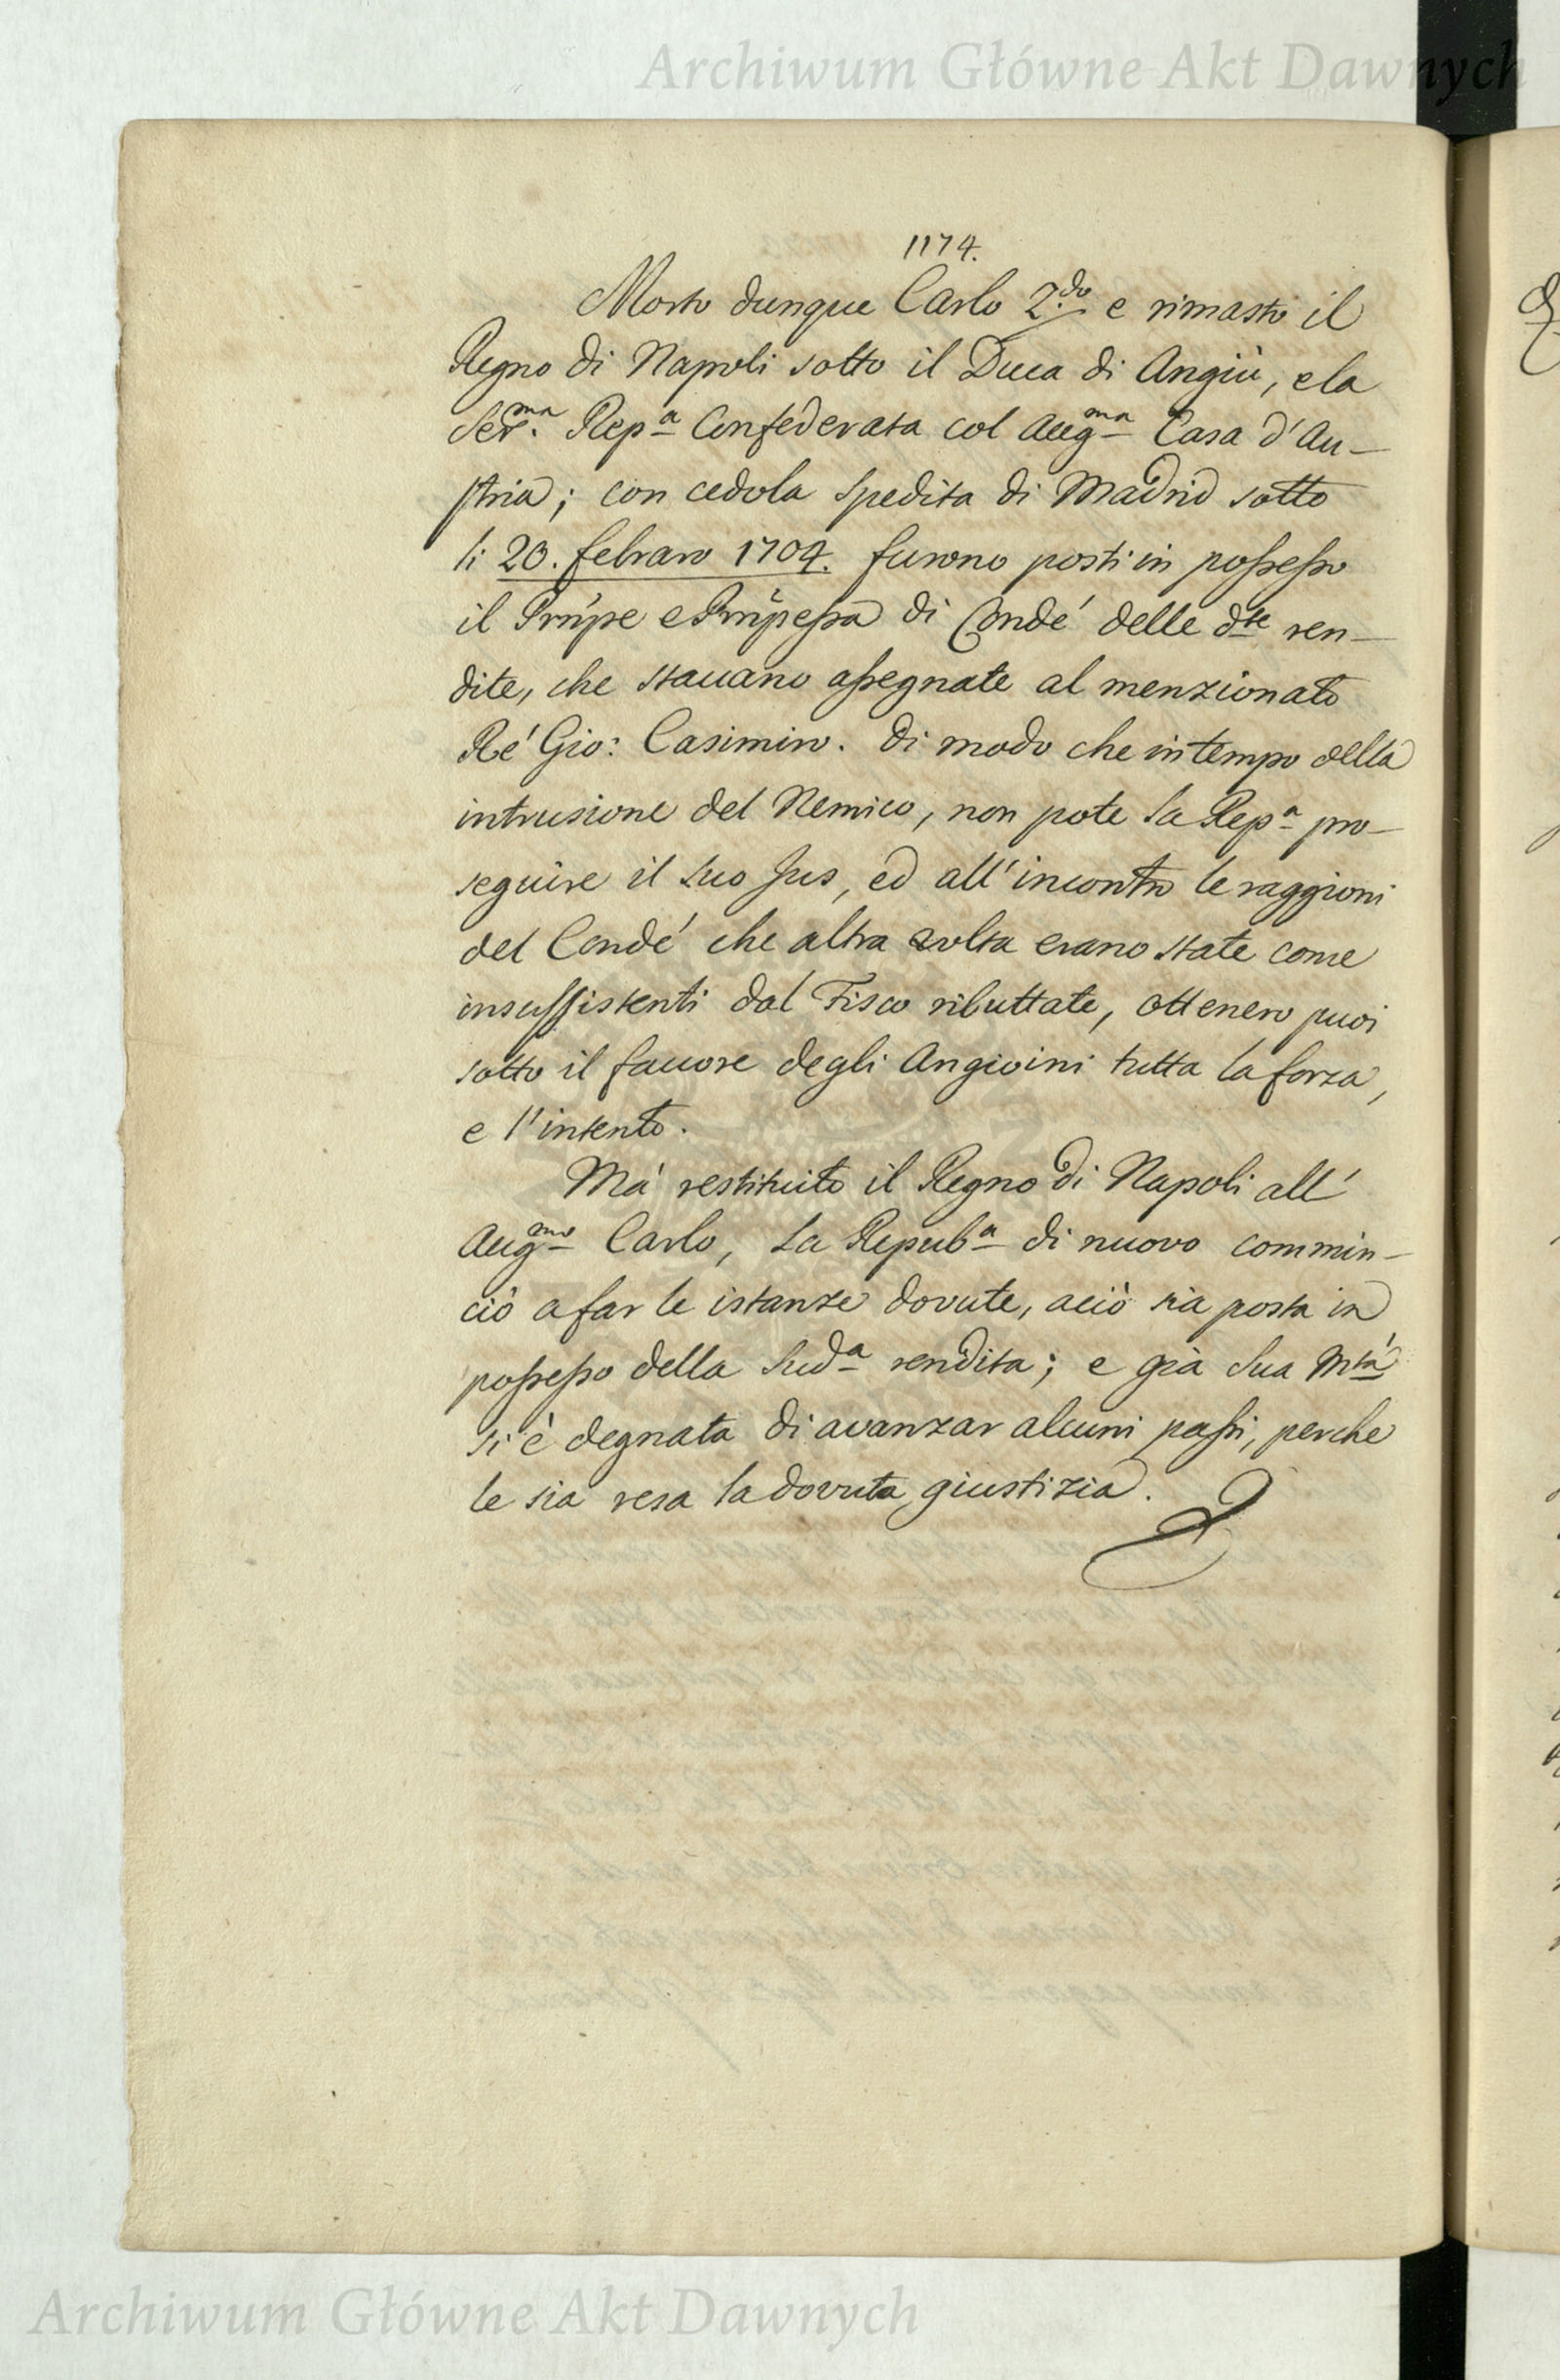 Archiwum Główne Akt Dawnych
1174.
Morto dunque Carlo 2.do e rimasto il
Regno di Napoli sotto il Duca di Angiù, e la
Ser.ma Rep.a Confederata col Aug.ma Casa d'Au-
stria; con cedola spedita di Madrid sotto
li 20. febraro 1704. furono posti in possesso
il Prnpe e Prnpessa di Condé delle dte ren-
dite, che stauano assegnate al menzionato
Ré Gio: Casimiro. di modo che in tempo della
intrusione del Nemico, non pote la Rep.a pro-
seguire il suo Jus, ed all'incontro le raggioni
del Condé che altra volta erano state come
insussistenti dal Fisco ributtate, ottenero puoi
sotto il fauore degli Angioini tutta la forza,
e l'intento.
Má restituito il Regno di Napoli all'
Aug.mo Carlo, la Repub.a di nuovo commin-
ciò a far le istanze dovute, acciò sia posta in
possesso della Sud.a rendita; e già Sua Mtá
si è degnata di avanzar alcuni passi, perche
le sia resa la dovuta giustizia.
Archiwum Główne Akt Dawnych